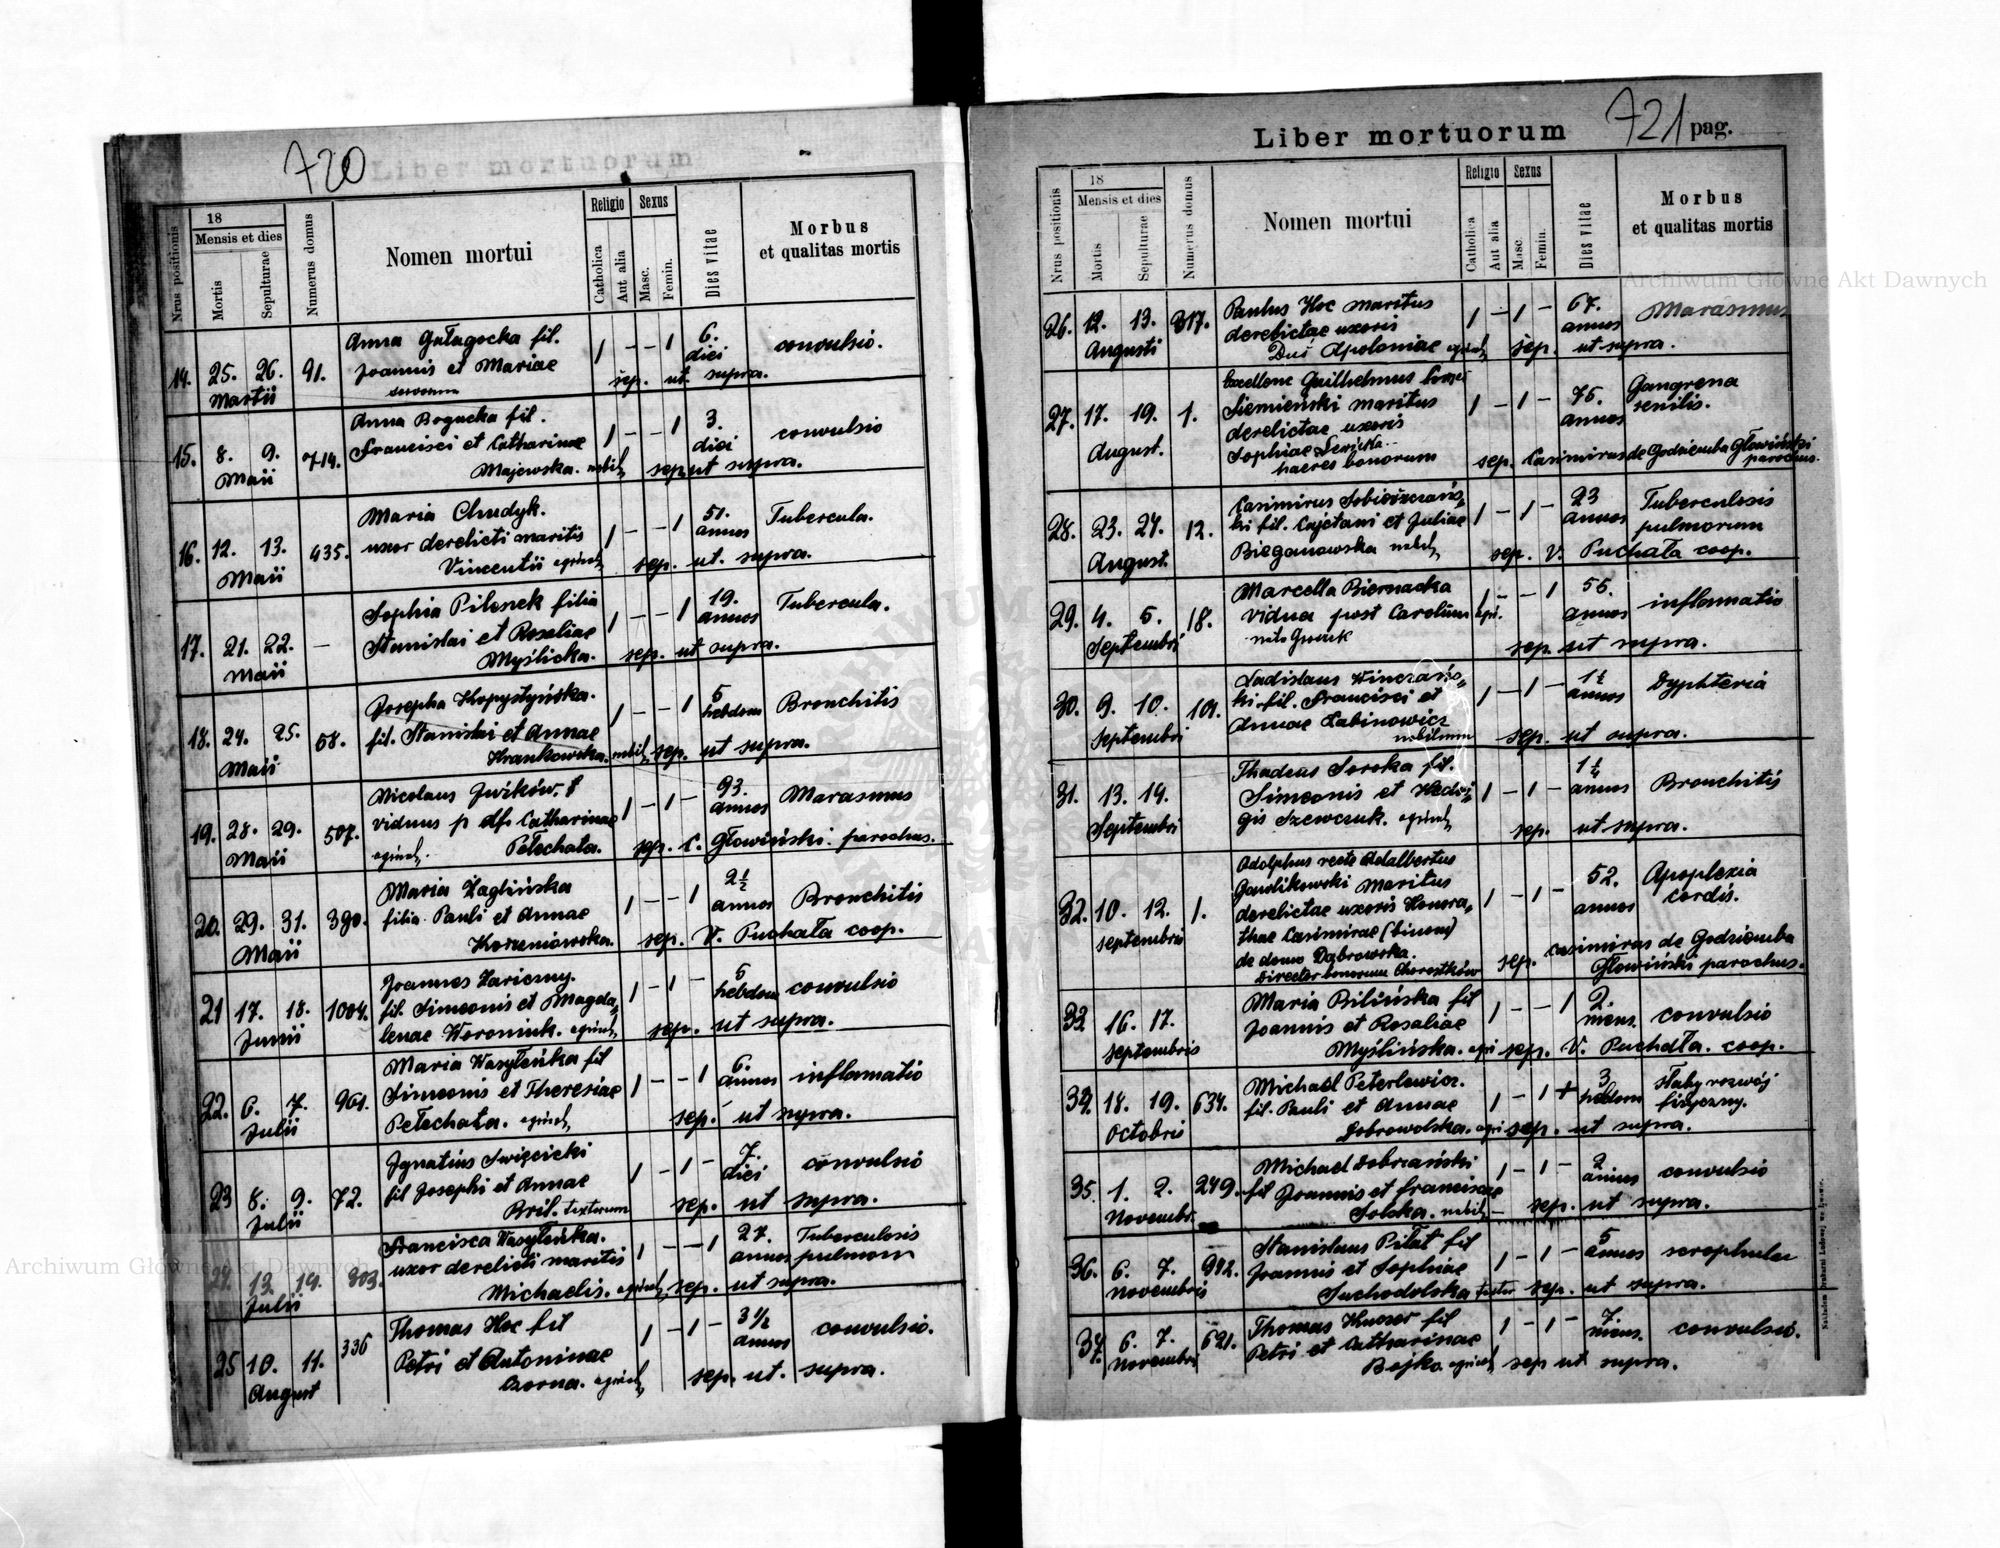 720
Liber mortuorum
Nrus positionis
18
Mensis et dies
Mortis
Sepulturae
Numerus domus
Nomen mortui
Religio
Catholica
Aut alia
Sexus
Masc.
Femin.
Dies vitae
Morbus
et qualitas mortis
14. 25. 26. 91. Anna Gałagocka fil. 1 - - 1 6. convulsio.
Martii Joannis et Mariae diei
sep. ut. supra.
15. 8. 9. 714. Anna Bogucka fil. 1 - - 1 3. convulsio
Maii Francisci et Catharinae diei
Majewska. nobil. sep. ut supra.
16. 12. 13. 435. Maria Chudyk. 1 - - 1 51. Tubercula.
Maii uxor derelicti maritis annos
Vincentii agricol. sep. ut. supra.
17. 21. 22. - Sophia Pilsnek filia 1 - - 1 19. Tubercula.
Maii Stanislai et Rosaliae annos
Myślicka. sep. ut supra.
18. 24. 25. 58. Josepha Kopystyńska. 1 - - 1 5 Bronchitis
Maii fil. Stanislai et Annae hebdom
Hrankowska. nobil. sep. ut supra.
19. 28. 29. 507. Nicolaus 1 - 1 - 93. Marasmus
Maii viduus p. df. Catharinae annos
agricol. Petechata. sep. C. Głowiński. parochus.
20. 29. 31. 390. Maria Żaglińska 1 - - 1 2½ Bronchitis
Maii filia Pauli et Annae annos
Korzeniowska. sep. V. Puchała coop.
21 17. 18. 1004. Joannes Zariczny. 1 - 1 - 5 convulsio
Junii fil. Simeonis et Magda- hebdom
lenae Woroniuk. agricol. sep. ut supra.
22. 6. 7. 961. Maria Wasyleńka fil 1 - - 1 6. inflamatio
Julii Simeonis et Theresiae annos
Petechata. agricol. sep. ut supra.
23 8. 9. 72. Ignatius Swięcicki 1 - 1 - 7. convulsio
Julii fil Josephi et Annae diei
Bril. textorum sep. ut supra.
24. 13. 14. 803. Francisca Wasyleńka. 1 - - 1 27. Tuberculosis
Julii uxor derelicti maritis annos pulmon
Michaelis. agricol. sep. ut supra.
25 10. 11. 336 Thomas Hoc fil 1 - 1 - 3½ convulsio.
August Petri et Antoninae annos
Czorna. agricol. sep. ut. supra.
Liber mortuorum 721 pag.
Nrus positionis
18
Mensis et dies
Mortis
Sepulturae
Numerus domus
Nomen mortui
Religio
Catholica
Aut alia
Sexus
Masc.
Femin.
Dies vitae
Morbus
et qualitas mortis
26. 12. 13. 317. Paulus Hoc maritus 1 - 1 - 67. Marasmus
Augusti derelictae uxoris annos
Apoloniae agricol. sep. ut supra.
27. 17. 19. 1. Guilhelmus 1 - 1 - 76. Gangrena
August. Siemieński maritus annos senilis.
derelictae uxoris
Sophiae
haeres bonorum sep. Casimirus de Godziemba Głowiński
parochus.
28. 23. 24. 12. Casimirus Sobieszczańs- 1 - 1 - 23 Tuberculosis
August. ki fil. Cajetani et Juliae annos pulmorum
Bieganowska nobil. sep. V. Puchała coop.
29. 4. 5. 18. Marcella Biernacka 1 - - 1 56. inflamatio
Septembri vidua post Carolum agri. annos
sep. ut supra.
30. 9. 10. 101. Ladislaus Winczańs- 1 - 1 - 1½ Dyphteria
Septembri ki fil. Francisci et annos
Annae Labinowicz
nobilium sep. ut supra.
31. 13. 14. Thadeus Soroka fil. 1 - 1 - 1¼ Bronchitis
Septembri Simeonis et Hedvi- annos
gis Szewczuk. agricol. sep. ut supra.
32. 10. 12. 1. Adolphus recte Adalbertus 1 - 1 - 52. Apoplexia
Septembris Gawlikowski maritus annos Cordis.
derelictae uxoris Honora-
thae Casimirae (binom)
de domo Dąbrowska.
Director bonorum Chorostków sep. Casimirus de Godziemba
Głowiński parochus.
33 16. 17. Maria Bilińska fil 1 - - 1 2. convulsio
Septembris Joannis et Rosaliae mens.
Myślińska. agri sep. V. Puchała. coop.
34. 18. 19. 634. Michael Peterlewicz. 1 - 1 + 3 słaby rozwój
Octobris fil. Pauli et Annae hebdom fizyczny.
Dobrowolska. agri sep. ut supra.
35. 1. 2. 249. Michael Dobrzański 1 - 1 - 2 convulsio
Novembr. fil Joannis et Franciscae annos
Solska. nobil. sep. ut supra.
36. 6. 7. 942. Stanislaus Piłat fil 1 - 1 - 5 scrophulae
Novembris Joannis et Sophiae annos
Suchodolska sep. ut supra.
37. 6. 7. 621. Thomas fil 1 - 1 - 7. convulsio.
Novembri Petri et Catharinae mens.
Bojko. agricol. sep ut supra.
Archiwum Główne Akt Dawnych
Archiwum Główne Akt Dawnych